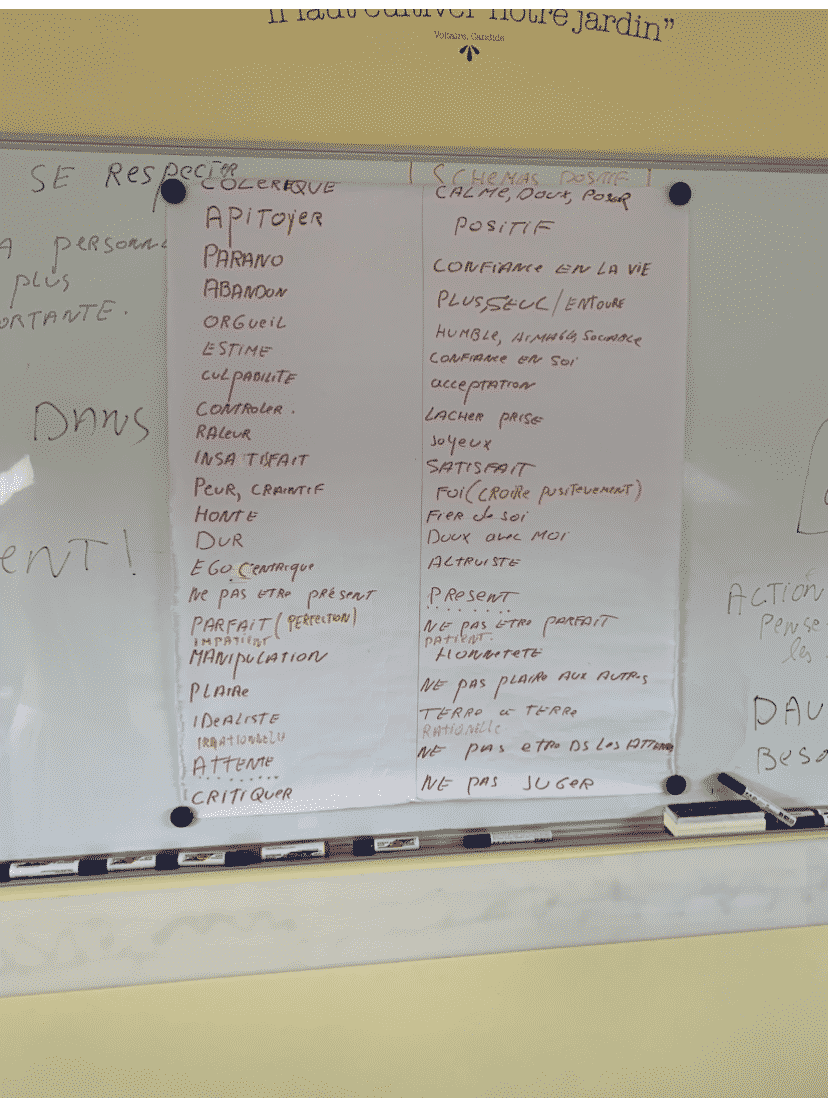 notre jardin”
Voltaire, Candide
SE RESPECTER
SCHEMAS POSITIF
COLEREQUE
CALME, DOUX, POSER
APITOYER
POSITIF
PARANO
CONFIANCE EN LA VIE
ABANDON
PLUS SEUL / ENTOURE
ORGUEIL
HUMBLE, AIMABLE, SOCIABLE
ESTIME
CONFIANCE EN SOI
CULPABILITE
ACCEPTATION
CONTROLER.
LACHER PRISE
RALEUR
JOYEUX
INSATISFAIT
SATISFAIT
PEUR, CRAINTIF
FOI (CROIRE POSITEVEMENT)
HONTE
FIER de SOI
DUR
DOUX AVEC MOI
EGO CENTRIQUE
ALTRUISTE
NE PAS ETRE PRÉSENT
PRESENT
PARFAIT (PERFECTION)
NE PAS ETRE PARFAIT
IMPATIENT
PATIENT.
MANIPULATION
HONNETETE
PLAIRE
NE PAS PLAIRE AUX AUTRES
IDEALISTE
TERRE a TERRE
IRRATIONNELLE
RATIONELLE
ATTENTE
NE PAS ETRE DS LES ATTENTES
CRITIQUER
NE PAS JUGER
PLUS
DANS
ENT!
ACTION
PENSE
les